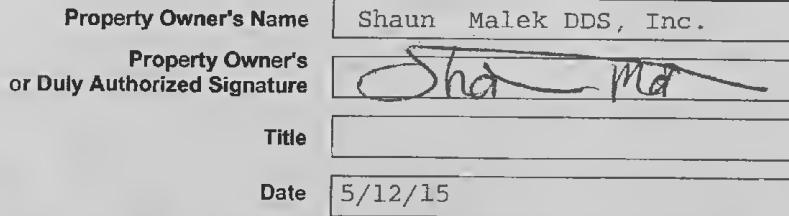 Property Owner's Name Shaun Malek DDS, Inc.
Property Owner's
or Duly Authorized Signature Sha Ma
Title
Date 5/12/15